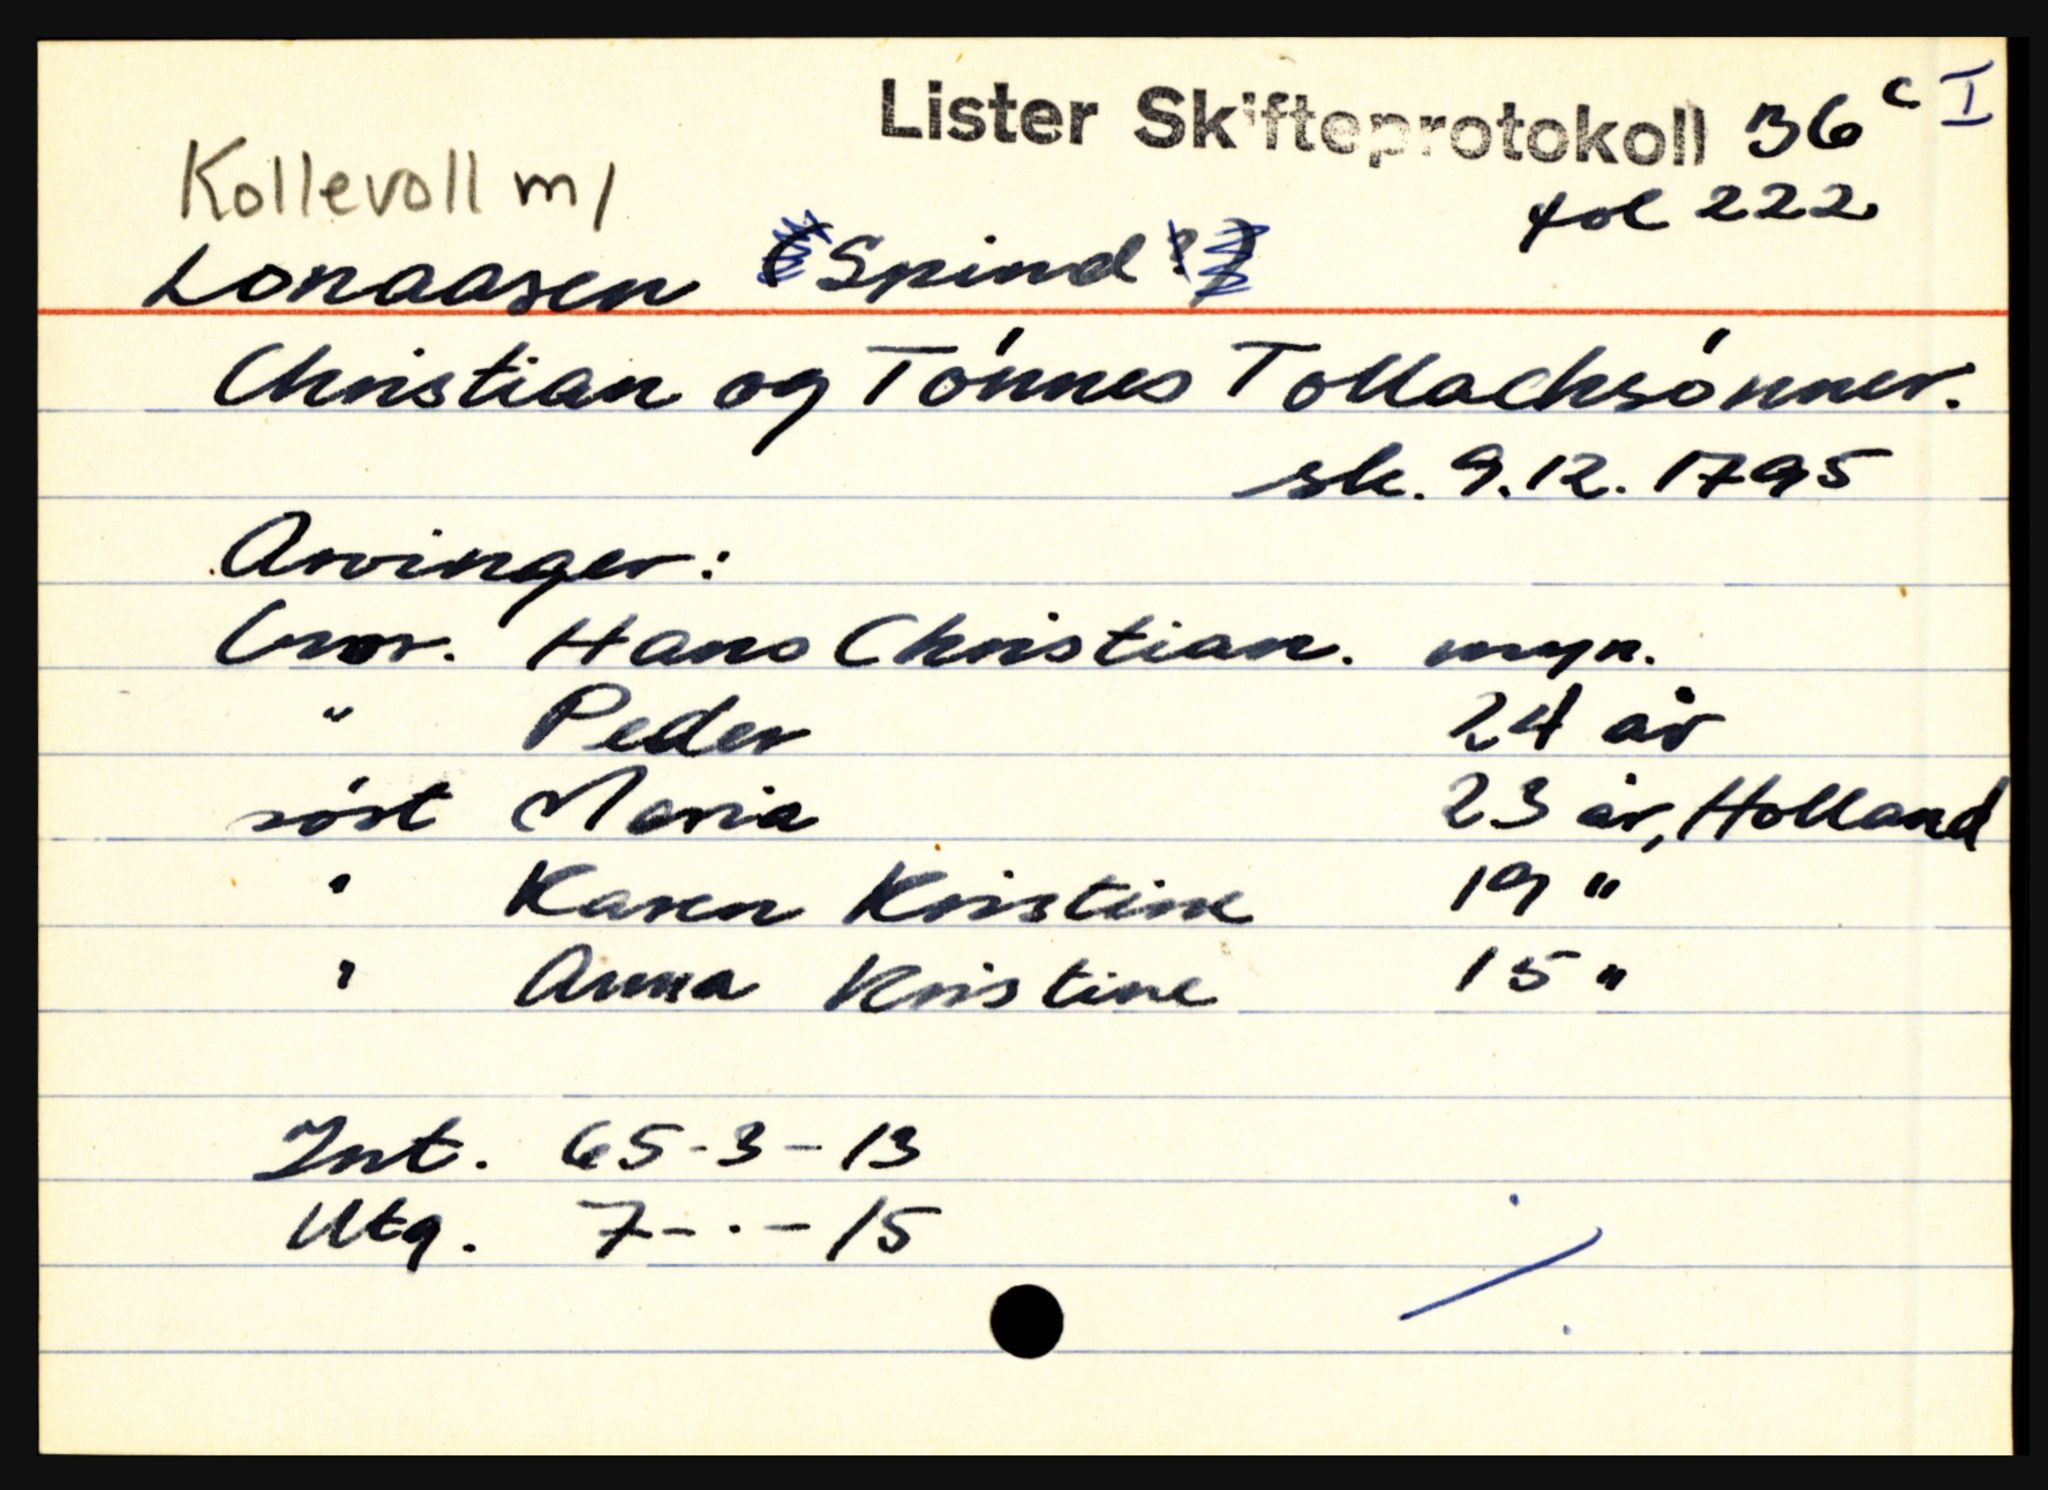 Lister Skifteprotokoll 36 c I
fol 222
Kollevoll m/
Lonaasen Spind
Christian og Tónnes Tollachsónner.
sk. 9.12.1795
Arvinger:
bror. Hans Christian. myn.
" Peder 24 år
söst Maria 23 år, Holland
" Karen Kristine 19 "
" Anna Kristine 15 "
Int. 65-3-13
Utg. 7-.-15